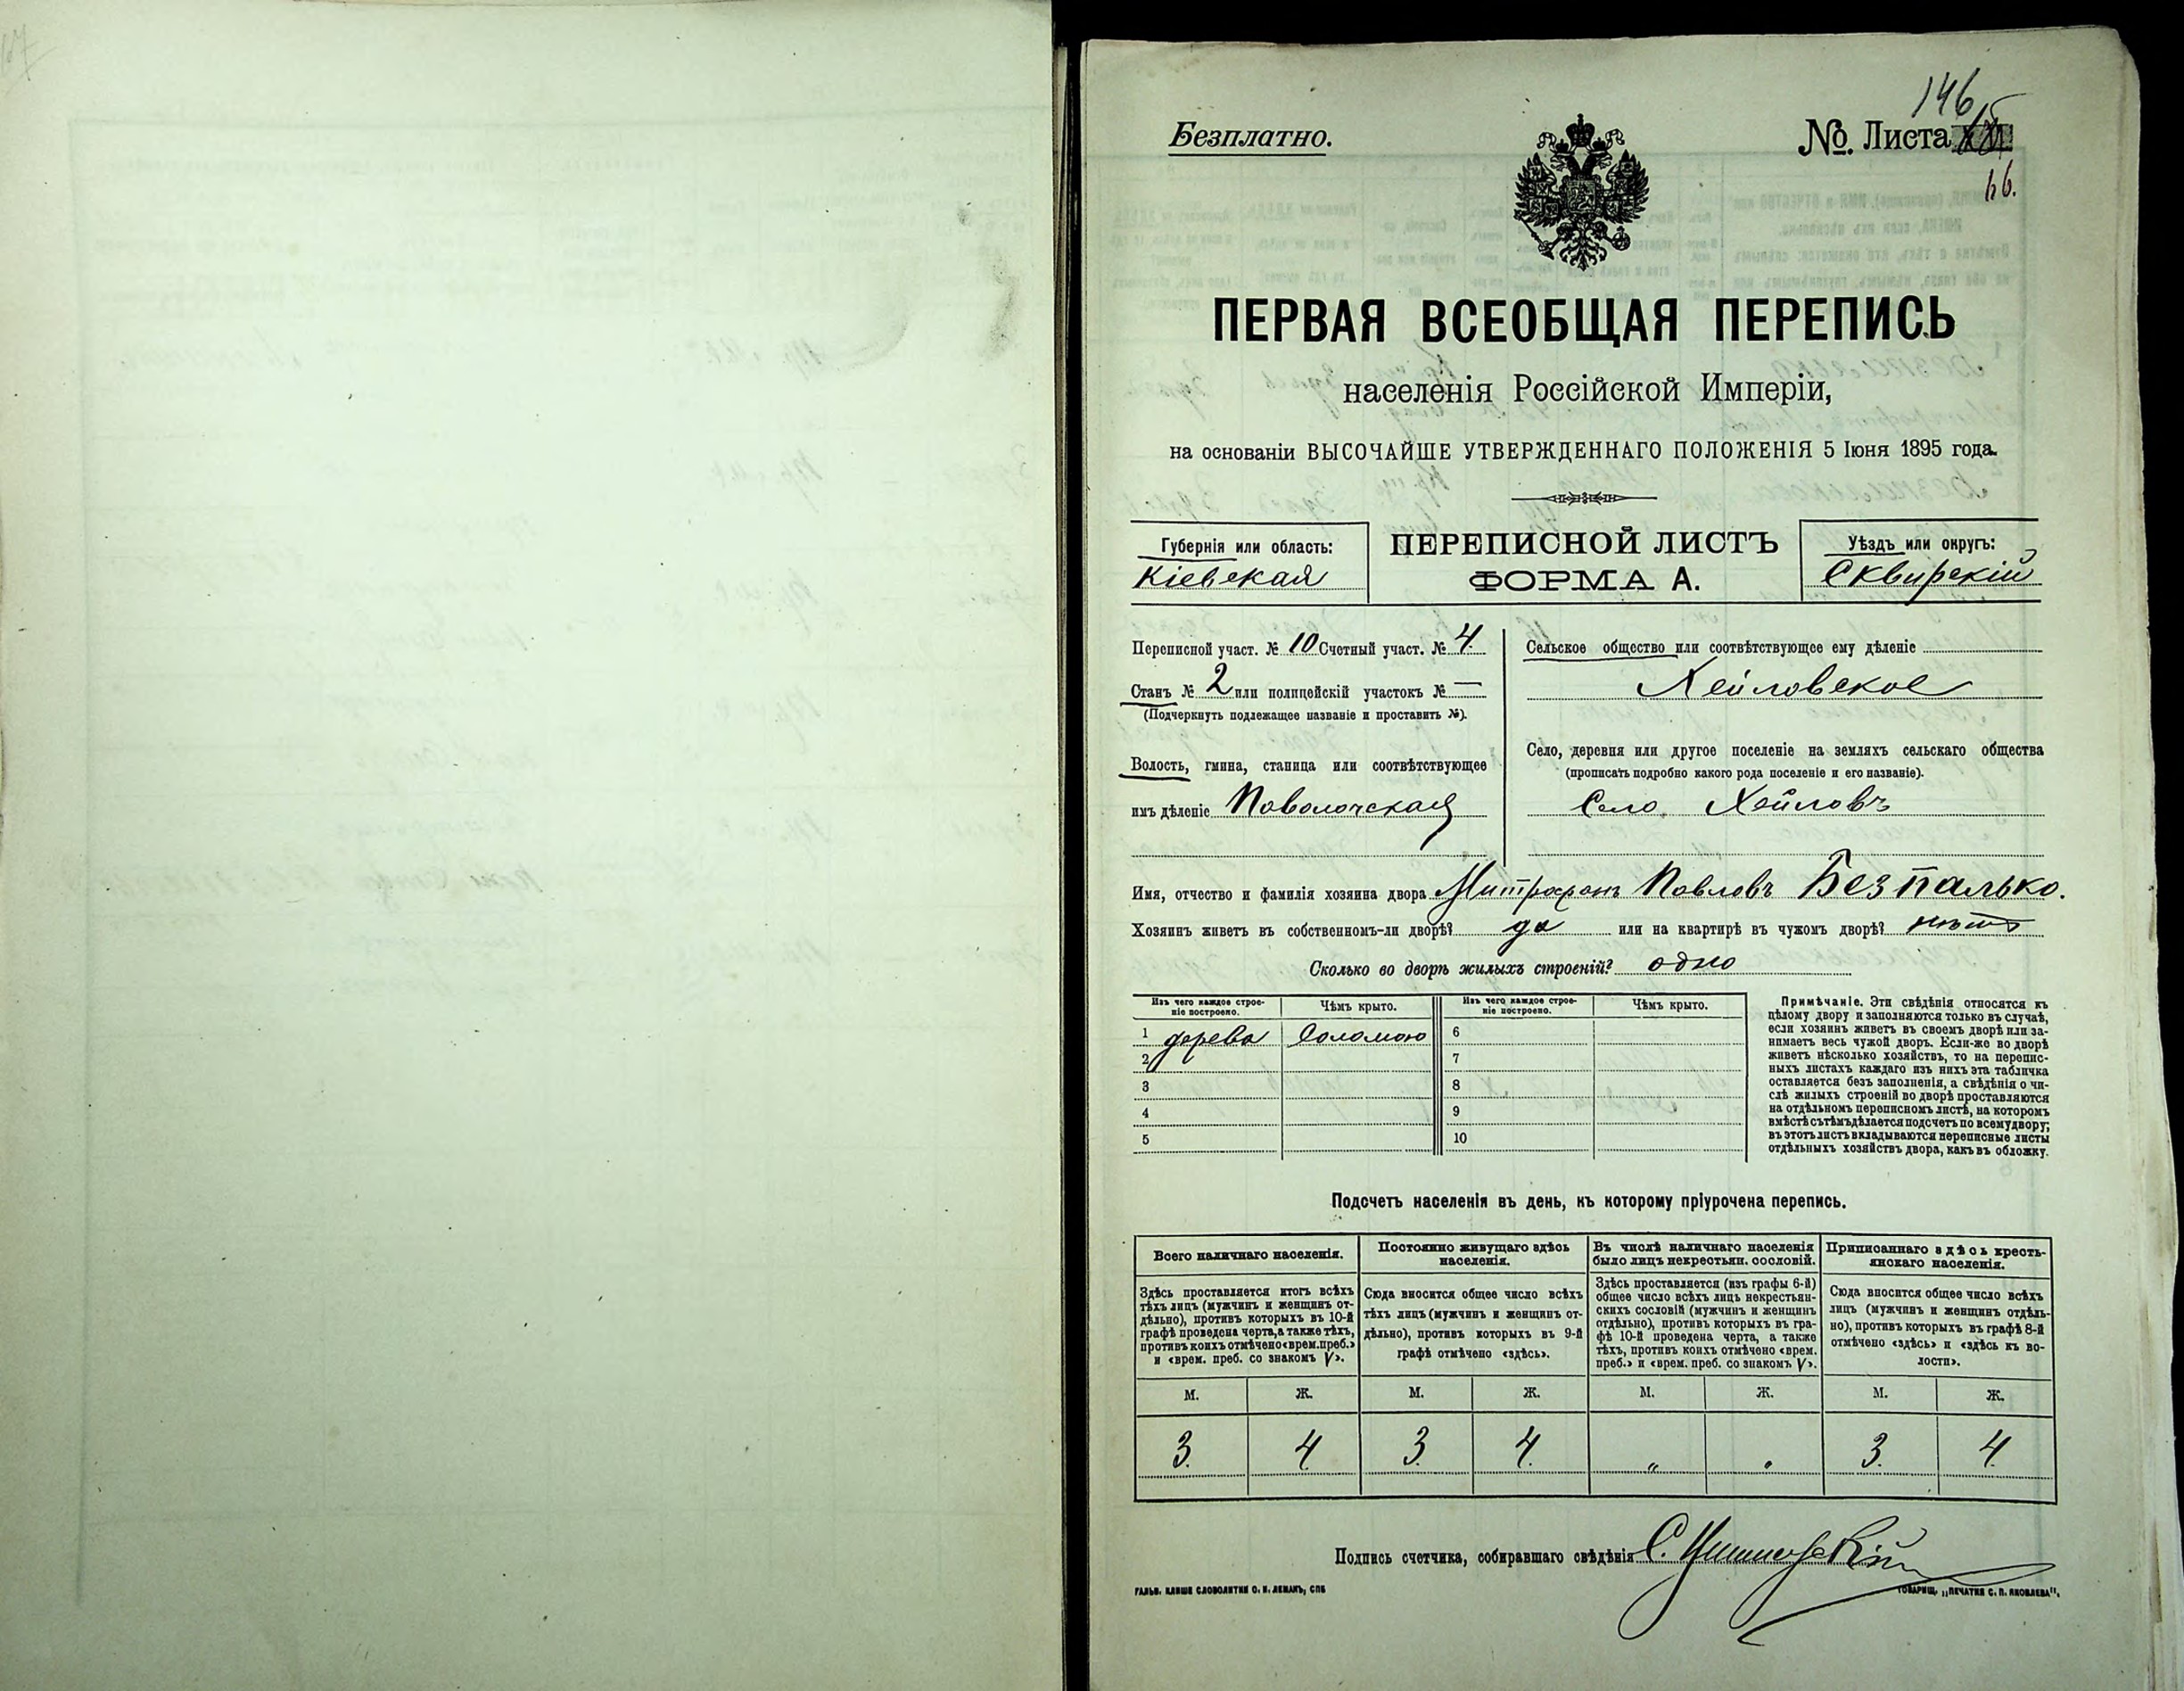 Безплатно.
146
№ Листа
66.
ПЕРВАЯ ВСЕОБЩАЯ ПЕРЕПИСЬ
населенія Россійской Имперіи,
на основаніи ВЫСОЧАЙШЕ УТВЕРЖДЕННАГО ПОЛОЖЕНІЯ 5 Іюня 1895 года.
Губернія или область:
Кіевская
ПЕРЕПИСНОЙ ЛИСТЪ
ФОРМА А.
Уѣздъ или округъ:
Сквирскій
Переписной участ. № 10 Счетный участ. № 4.
Станъ № 2 или полицейскій участокъ № —
(Подчеркнуть подлежащее названіе и проставить №).
Волость, гмина, станица или соотвѣтствующее
имъ дѣленіе Паволочская
Сельское общество или соотвѣтствующее ему дѣленіе
Хейловское
Село, деревня или другое поселеніе на земляхъ сельскаго общества
(прописать подробно какого рода поселеніе и его названіе).
Село Хейловъ
Имя, отчество и фамилія хозяина двора Митрофанъ Павловъ Безпалько.
Хозяинъ живетъ въ собственномъ-ли дворѣ? да или на квартирѣ въ чужомъ дворѣ? нѣтъ
Сколько во дворѣ жилыхъ строеній? одно
Изъ чего каждое строе-
ніе построено.
Чѣмъ крыто.
Изъ чего каждое строе-
ніе построено.
Чѣмъ крыто.
1 дерева Соломою 6
2 7
3 8
4 9
5 10
Примѣчаніе. Эти свѣдѣнія относятся къ
цѣлому двору и заполняются только въ случаѣ,
если хозяинъ живетъ въ своемъ дворѣ или за-
нимаетъ весь чужой дворъ. Если-же во дворѣ
живетъ нѣсколько хозяйствъ, то на перепис-
ныхъ листахъ каждаго изъ нихъ эта табличка
оставляется безъ заполненія, а свѣдѣнія о чи-
слѣ жилыхъ строеній во дворѣ проставляются
на отдѣльномъ переписномъ листѣ, на которомъ
вмѣстѣ съ тѣмъ дѣлается подсчетъ по всему двору;
въ этотъ листъ вкладываются переписные листы
отдѣльныхъ хозяйствъ двора, какъ въ обложку.
Подсчетъ населенія въ день, къ которому пріурочена перепись.
Всего наличнаго населенія.
Здѣсь проставляется итогъ всѣхъ
тѣхъ лицъ (мужчинъ и женщинъ от-
дѣльно), противъ которыхъ въ 10-й
графѣ проведена черта, а также тѣхъ,
противъ коихъ отмѣчено «врем. преб.»
и «врем. преб. со знакомъ V».
Постоянно живущаго здѣсь
населенія.
Сюда вносится общее число всѣхъ
тѣхъ лицъ (мужчинъ и женщинъ от-
дѣльно), противъ которыхъ въ 9-й
графѣ отмѣчено «здѣсь».
Въ числѣ наличнаго населенія
было лицъ некрестьян. сословій.
Здѣсь проставляется (изъ графы 6-й)
общее число всѣхъ лицъ некрестьян-
скихъ сословій (мужчинъ и женщинъ
отдѣльно), противъ которыхъ въ гра-
фѣ 10-й проведена черта, а также
тѣхъ, противъ коихъ отмѣчено «врем.
преб.» и «врем. преб. со знакомъ V».
Приписаннаго здѣсь кресть-
янскаго населенія.
Сюда вносится общее число всѣхъ
лицъ (мужчинъ и женщинъ отдѣль-
но), противъ которыхъ въ графѣ 8-й
отмѣчено «здѣсь» и «здѣсь къ во-
лости».
М. Ж. М. Ж. М. Ж. М. Ж.
3. 4 3. 4. „ 3. 4.
Подпись счетчика, собиравшаго свѣдѣнія С.
ГАЛЬВ. КЛИШЕ СЛОВОЛИТНИ О. И. ЛЕМАНЪ, СПБ
ТОВАРИЩ. „ПЕЧАТНЯ С. П. ЯКОВЛЕВА".